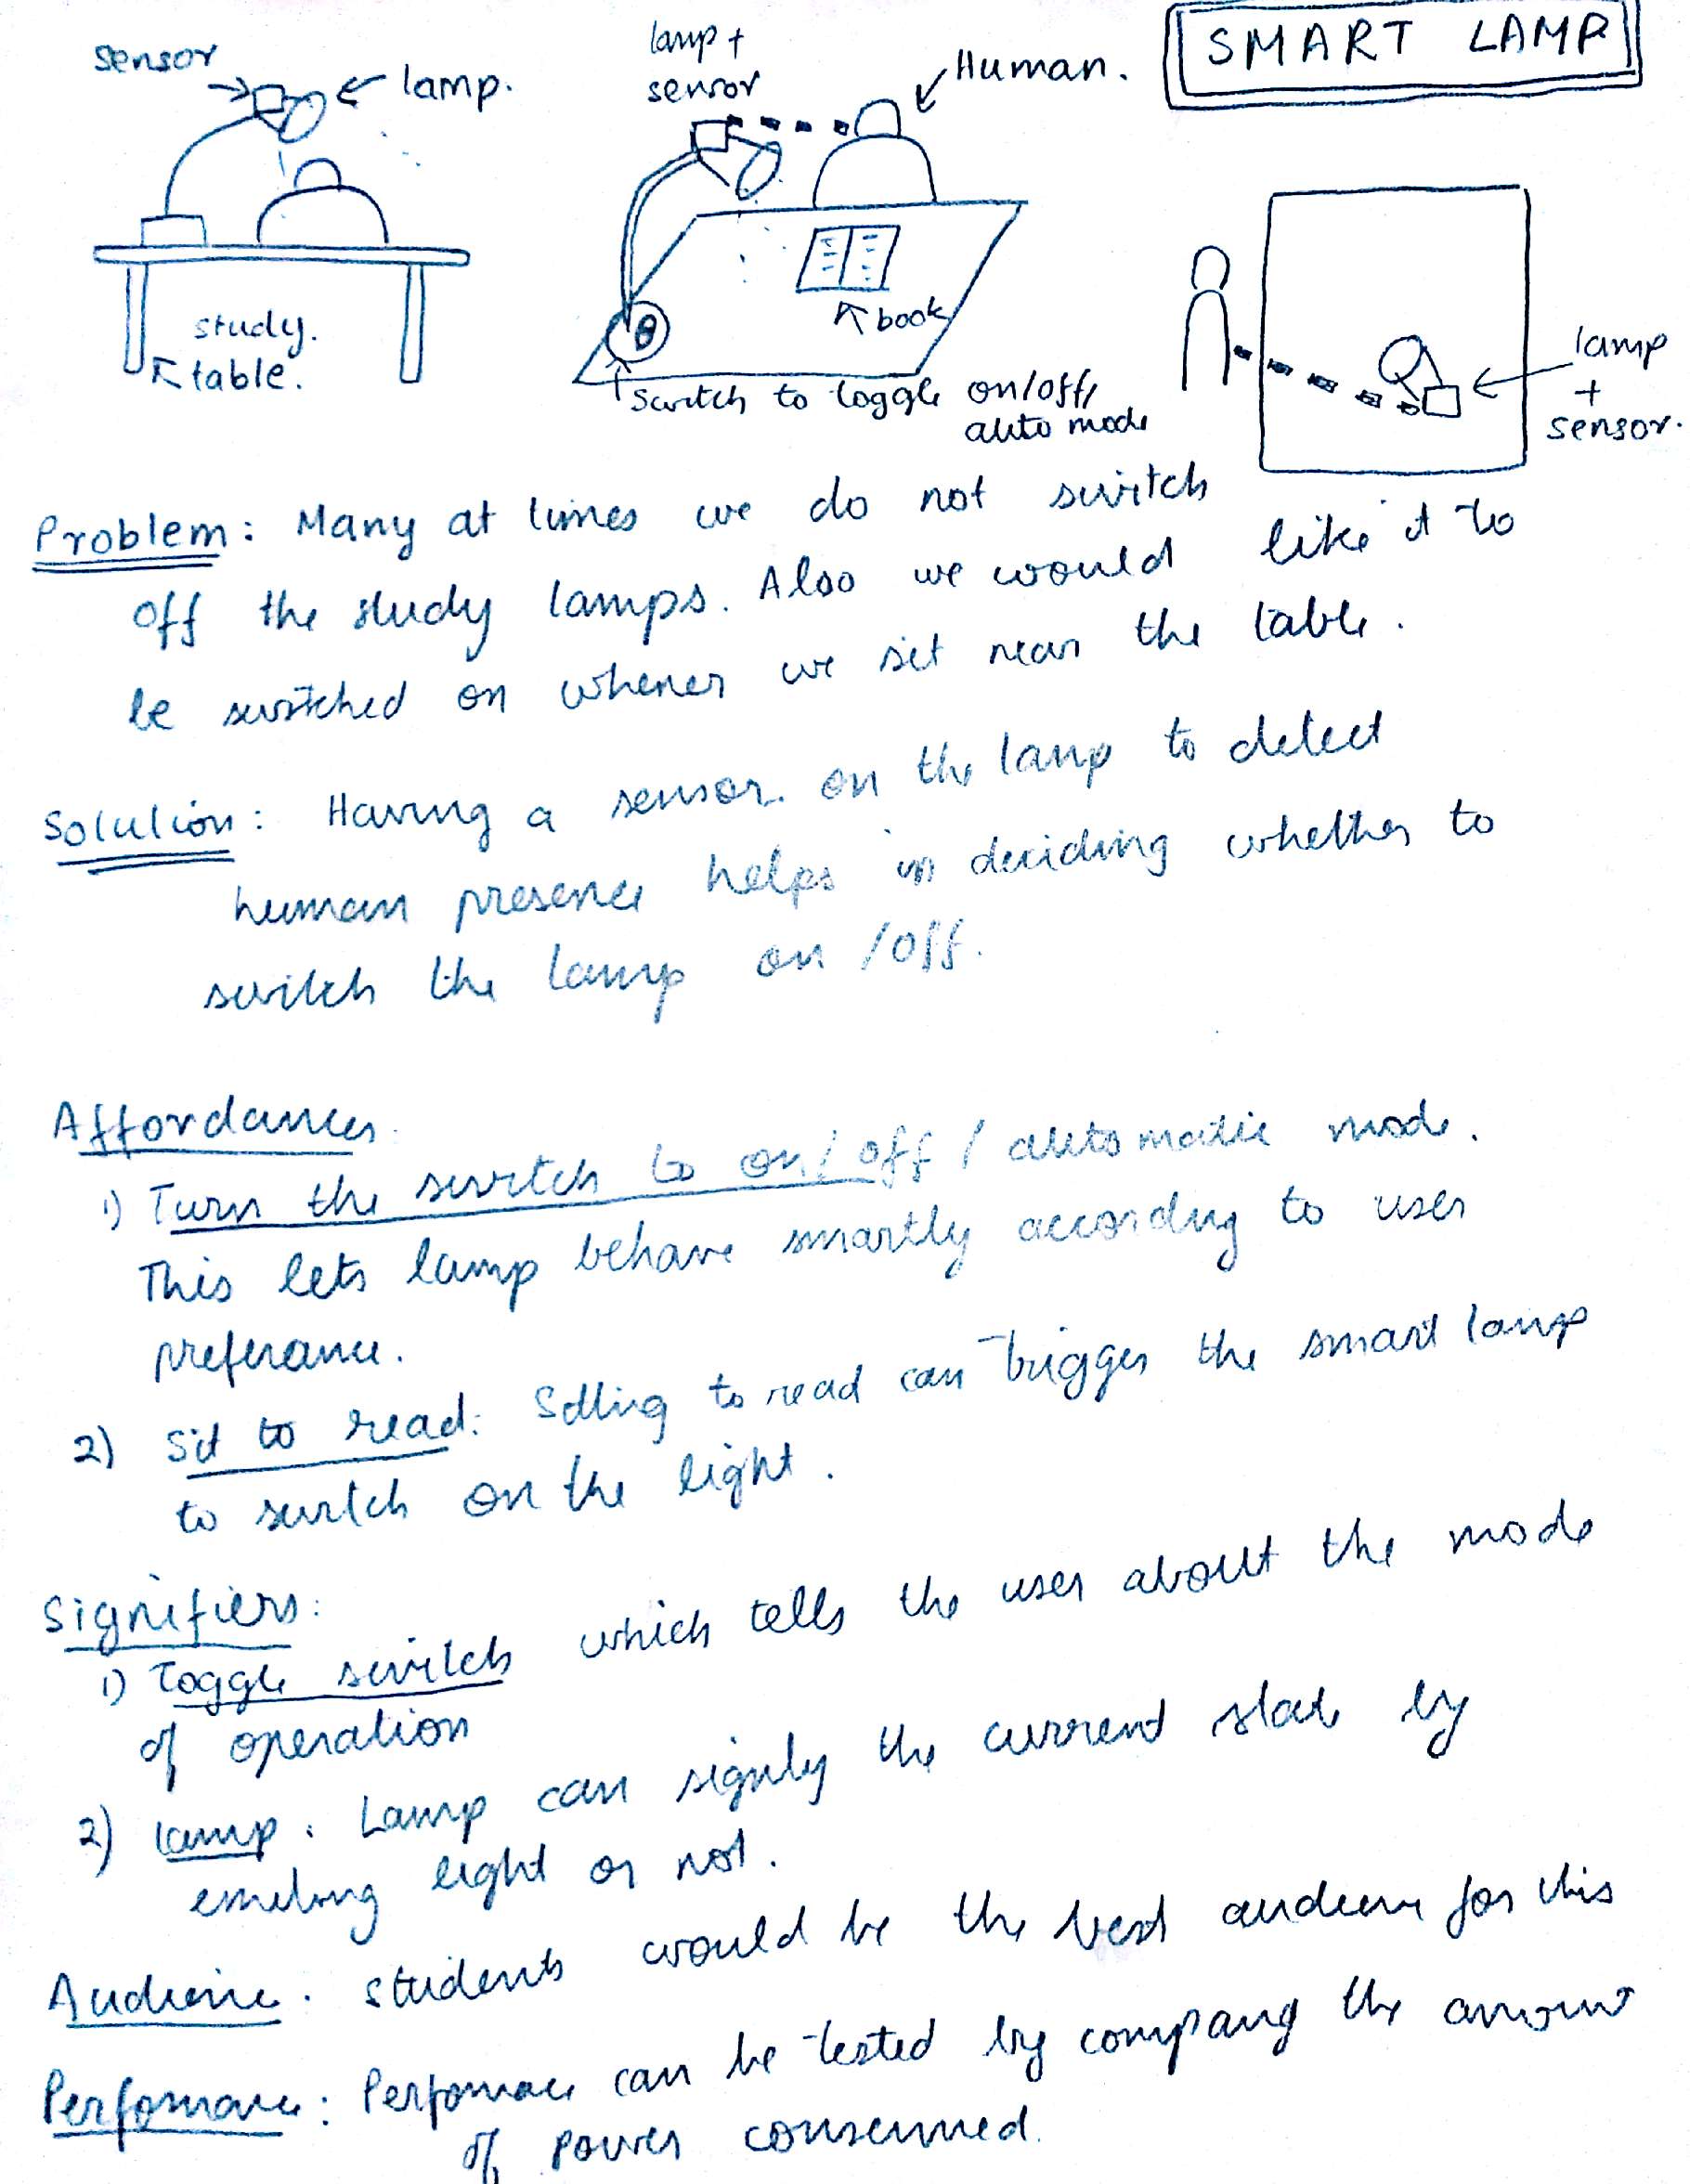 SMART LAMP
sensor
lamp.
study.
table.
lamp +
sensor
Human.
book
switch to toggle on/off/
auto mode
lamp
+
sensor.
Problem: Many at times we do not switch
off the study lamps. Also we would like it to
be switched on whener we sit near the table.
Solution: Having a sensor. on the lamp to detect
human presence helps in deciding whether to
switch the lamp on /off.
Affordances
1) Turn the switch to on/off/automatic mode.
This lets lamp behave smartly according to user
preferance.
2) Sit to read: Sitting to read can trigger the smart lamp
to switch on the light.
Signifiers:
1) Toggle switch which tells the user about the mode
of operation
2) Lamp: Lamp can signify the current state by
emitting light or not.
Audience: Students would be the best audience for this
Perfomance: Perfomace can be tested by comparing the amount
of power consumed.